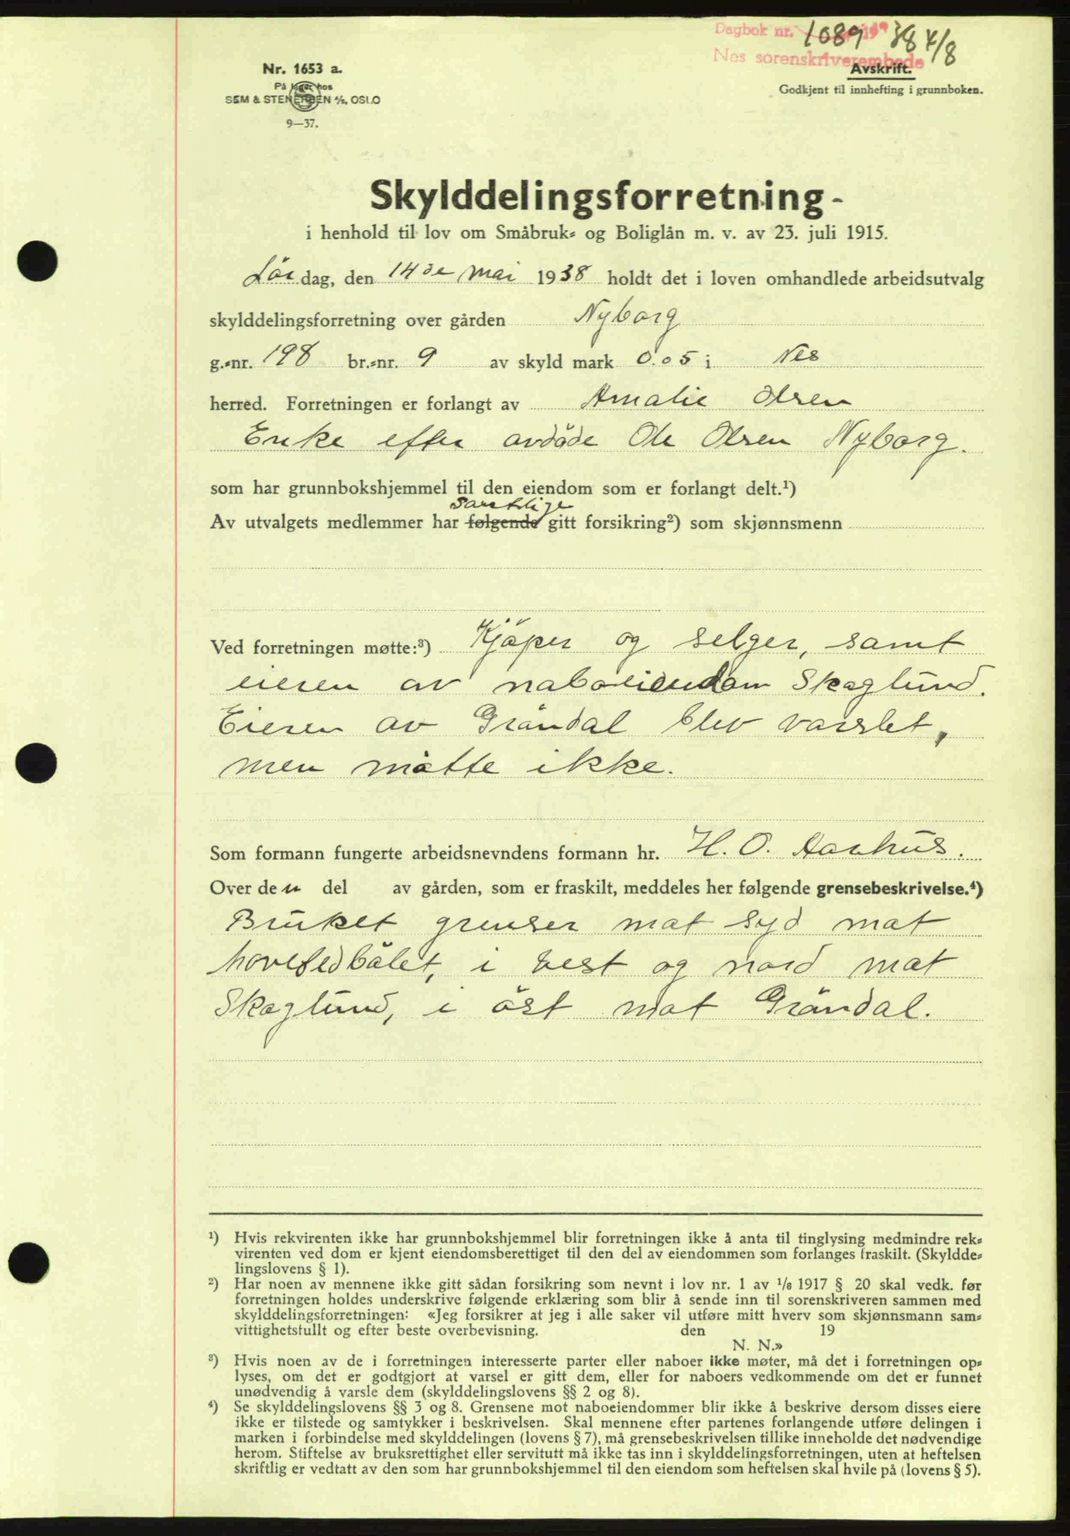 Dagbok nr. 1089 1938 4/8
Nes sorenskriverembede
Nr. 1653 a.
På lager hos
SEM & STENERSEN A/S, OSLO
9—37.
Avskrift.
Godkjent til innhefting i grunnboken.
Skylddelingsforretning -
i henhold til lov om Småbruk- og Boliglån m. v. av 23. juli 1915.
Lör dag, den 14de mai 1938 holdt det i loven omhandlede arbeidsutvalg
skylddelingsforretning over gården Nyborg
g.-nr. 198 br.-nr. 9 av skyld mark 0.05 i Nes
herred. Forretningen er forlangt av Amalie Olsen
Enke efter avdöde Ole Olsen Nyborg.
som har grunnbokshjemmel til den eiendom som er forlangt delt.¹)
samtlige
Av utvalgets medlemmer har følgende gitt forsikring²) som skjønnsmenn
Ved forretningen møtte:³) Kjöper og selger, samt
eieren av naboeiendom Skoglund.
Eieren av Gröndal blev varslet,
men møtte ikke.
Som formann fungerte arbeidsnevndens formann hr. H. O. Aarhus.
Over den del av gården, som er fraskilt, meddeles her følgende grensebeskrivelse.⁴)
Bruket grenser mot syd mot
hovedbölet, i vest og nord mot
Skoglund, i öst mot Gröndal.
¹) Hvis rekvirenten ikke har grunnbokshjemmel blir forretningen ikke å anta til tinglysing medmindre rek-
virenten ved dom er kjent eiendomsberettiget til den del av eiendommen som forlanges fraskilt. (Skyldde-
lingslovens § 1).
²) Har noen av mennene ikke gitt sådan forsikring som nevnt i lov nr. 1 av 1/6 1917 § 20 skal vedk. før
forretningen holdes underskrive følgende erklæring som blir å sende inn til sorenskriveren sammen med
skylddelingsforretningen: «Jeg forsikrer at jeg i alle saker vil utføre mitt hverv som skjønnsmann sam-
vittighetsfullt og efter beste overbevisning. den 19
N. N.»
³) Hvis noen av de i forretningen interesserte parter eller naboer ikke møter, må det i forretningen op-
lyses, om det er godtgjort at varsel er gitt dem, eller for naboers vedkommende om det er funnet
unødvendig å varsle dem (skylddelingslovens §§ 2 og 8).
⁴) Se skylddelingslovens §§ 3 og 8. Grensene mot naboeiendommer blir ikke å beskrive dersom disses eiere
ikke er tilstede og samtykker i beskrivelsen. Skal mennene efter partenes forlangende utføre delingen i
marken i forbindelse med skylddelingen (lovens § 7), må grensebeskrivelsen tillike inneholde det nødvendige
herom. Stiftelse av bruksrettighet eller servitutt må ikke tas inn i skylddelingsforretningen, uten at heftelsen
skriftlig er vedtatt av den som har grunnbokshjemmel til den eiendom som heftelsen skal hvile på (lovens § 5).